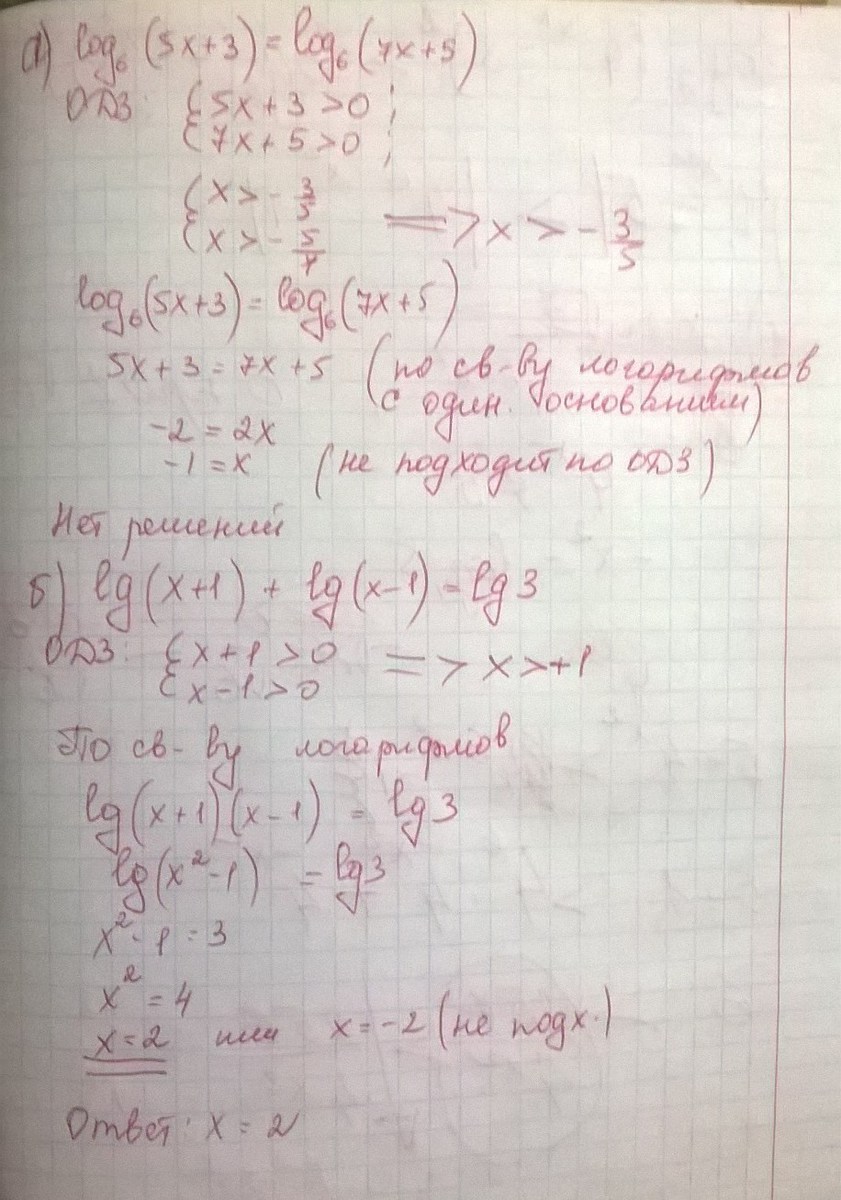 а) log₆(5x+3) = log₆(7x+5)
ОДЗ: { 5x+3 >0 ;
{ 7x+5 >0 ;
{ x > - 3/5
{ x > - 5/7 => x > - 3/5
log₆(5x+3) = log₆(7x+5)
5x+3 = 7x+5 (по св-ву логарифмов
с один. основанием)
-2 = 2x
-1 = x (не подходит по ОДЗ)
Нет решений
б) lg(x+1) + lg(x-1) = lg 3
ОДЗ: { x+1 >0 => x >+1
{ x-1 >0
По св-ву логарифмов
lg(x+1)(x-1) = lg 3
lg(x²-1) = lg 3
x²-1 = 3
x² = 4
x=2 или x=-2 (не подх.)
Ответ: x = 2